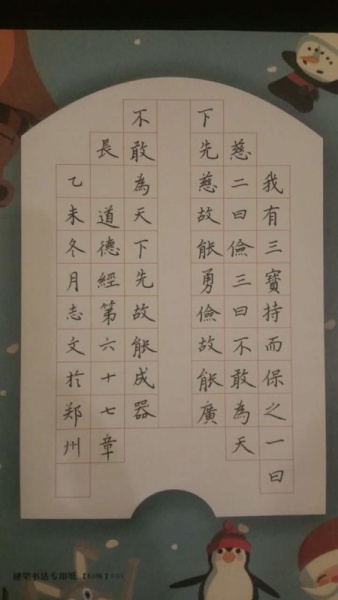 我有三寳持而保之一曰
慈二曰儉三曰不敢為天
下先慈故能勇儉故能廣
不敢為天下先故能成器
長
道德經第六十七章
乙未冬月志文於郑州
硬笔书法专用纸